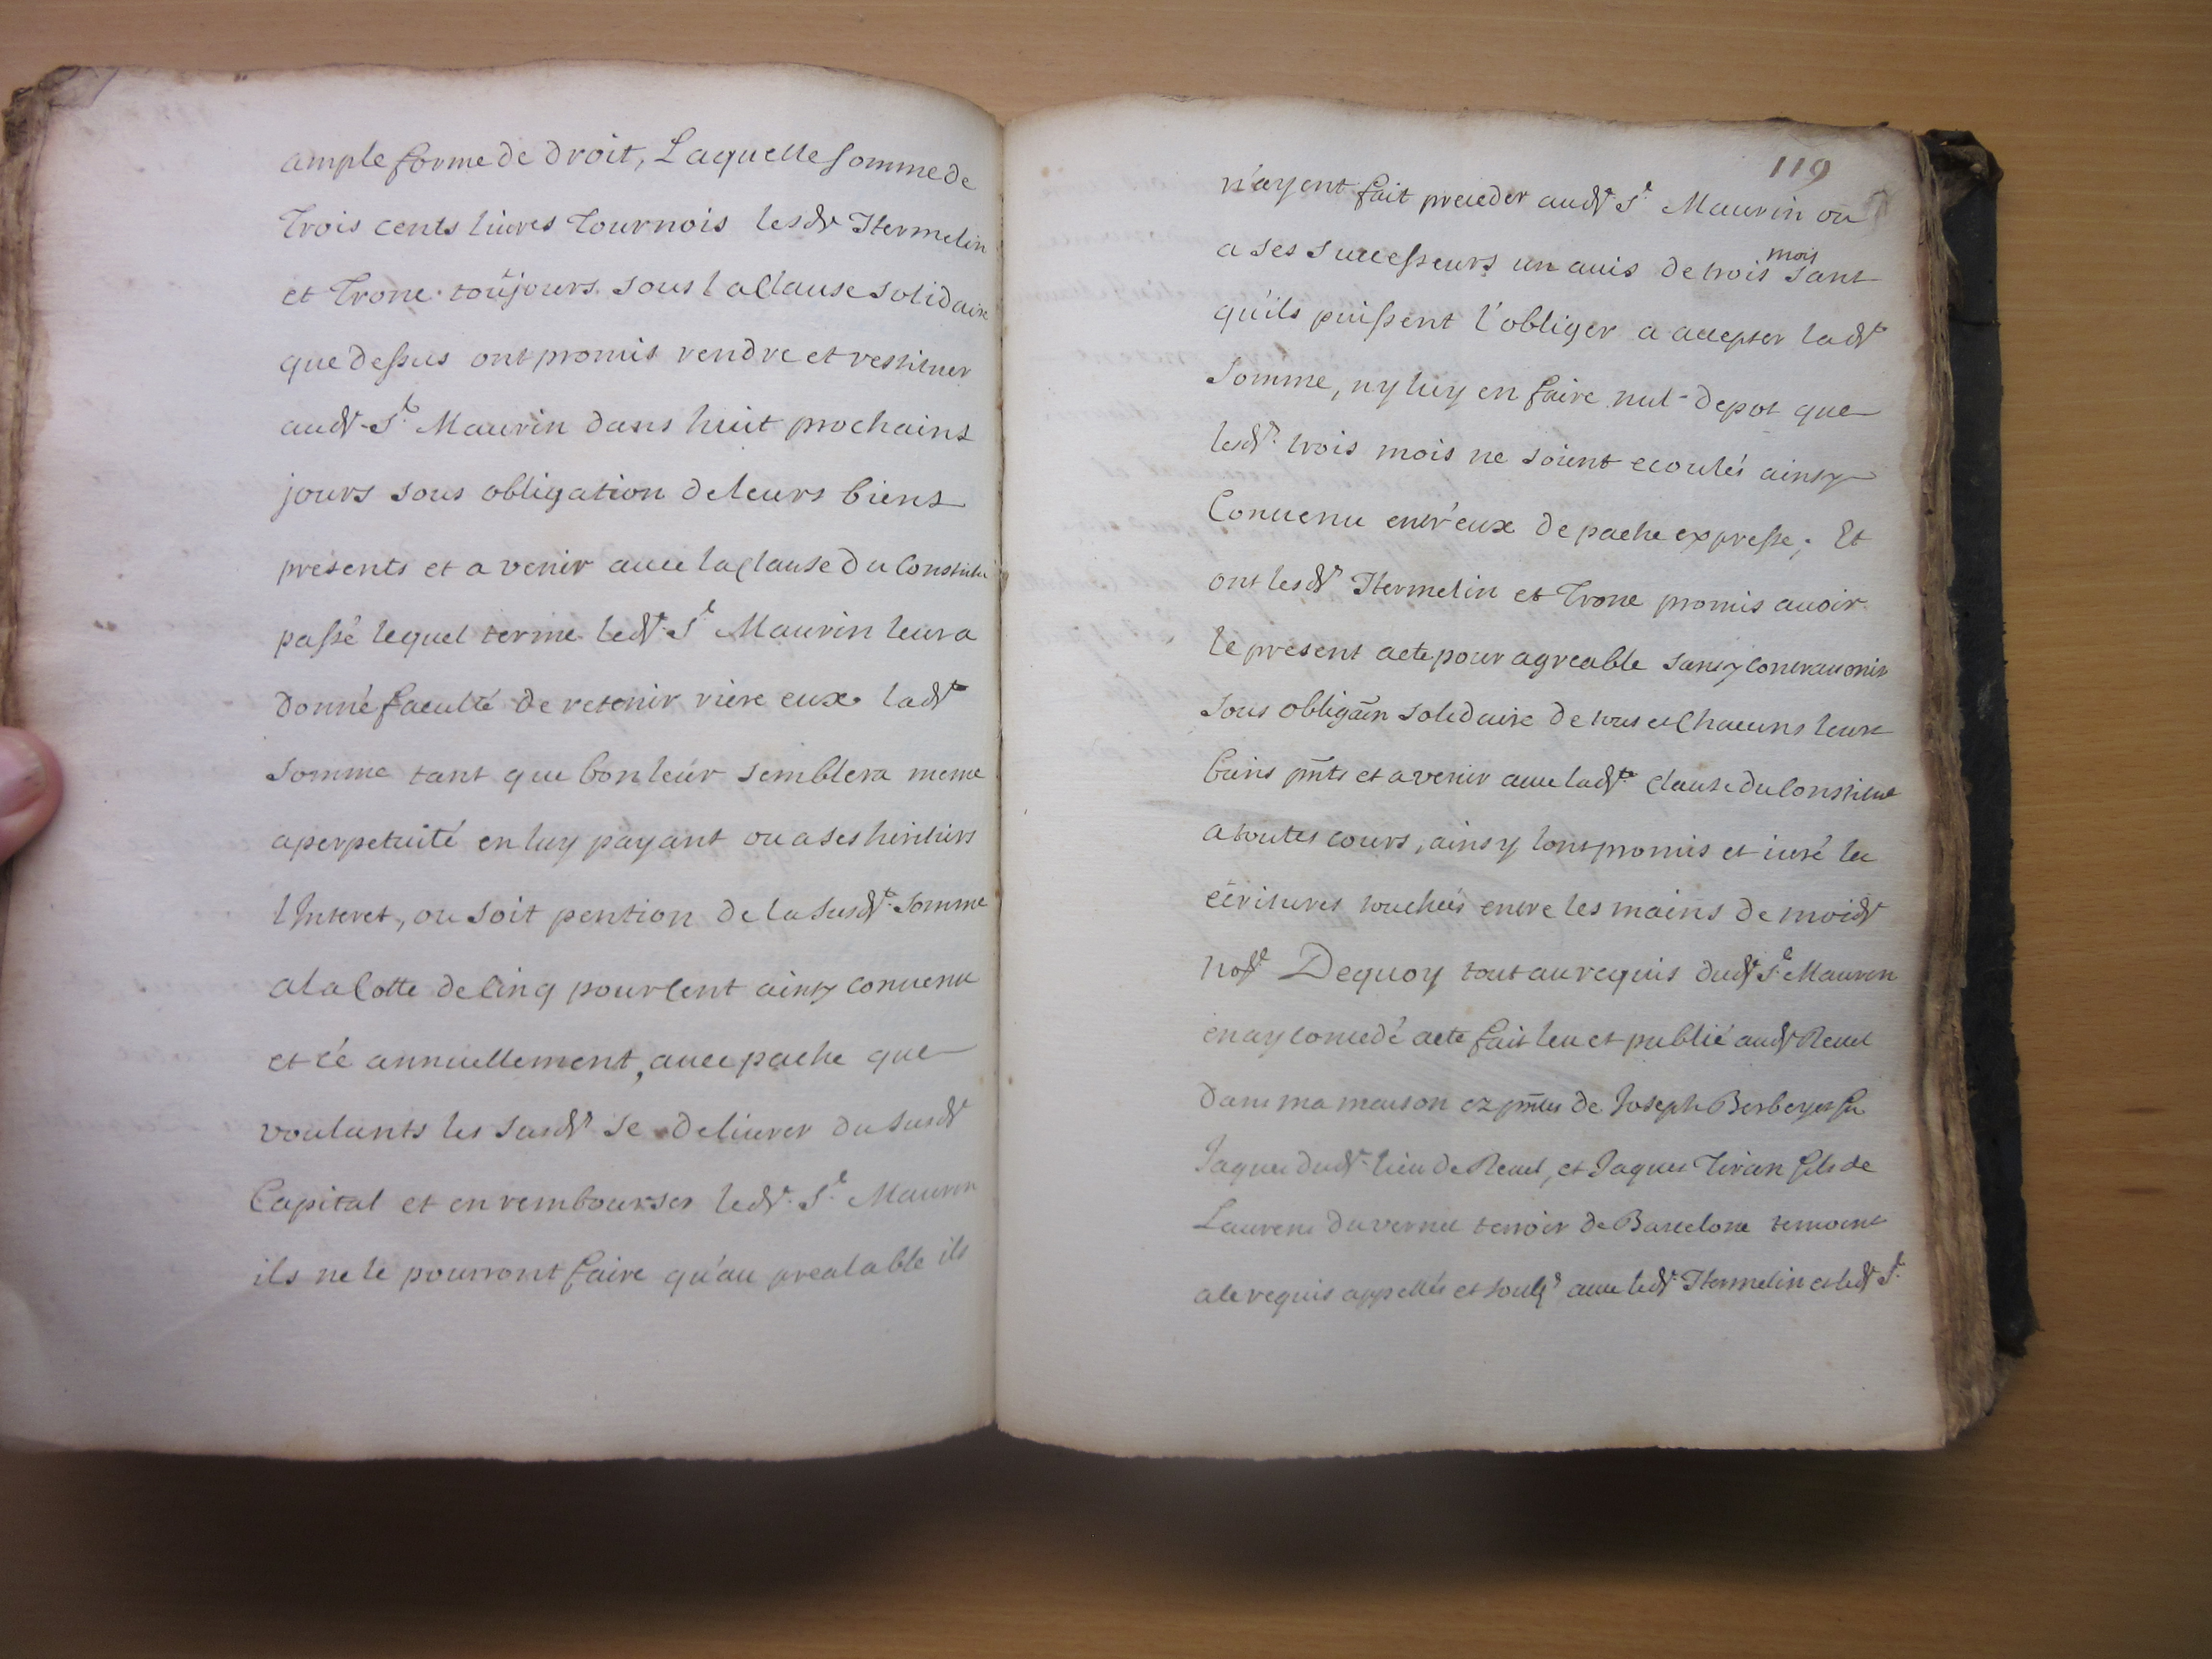 ample forme de droit, Laquelle somme de
Trois cents liures tournois lesdt Hermelin
et Trone toujours sous la Clause solidaire
que dessus ont promis rendre et restituer
audt St Maurin dans huit prochains
jours sous obligation de leurs biens
présents et a venir auec la Clause du Constitu
passé lequel terme ledt St Maurin leur a
donné faculté de retenir riere eux ladte
somme tant que bon leur semblera meme
a perpetuité en luy payant ou a ses heritiers
l'Interet, ou soit pention de la susdte somme
a la Cotte de Cinq pour Cent ainsy conuenu
et cé annuellement, auec pache que
voulants les susdt se deliurer du susdt
Capital et en rembourser ledt St Maurin
ils ne le pourront faire qu'au prealable ils
119
n'ayent fait preceder audt St Maurin ou
a ses successeurs un auis de trois mois sans
qu'ils puissent l'obliger a accepter ladte
somme, ny luy en faire nul depot que
lesdt trois mois ne soient ecoulés ainsy
Conuenu entr'eux de pache expresse; Et
ont lesdt Hermelin et Trone promis auoir
le present acte pour agreable sans y contrauenir
sous obligãon solidaire de tous et Chacuns leurs
biens pñts et a venir auec ladte Clause du Constitut
a toutes cours, ainsy l'ont promis et iuré les
écritures touchées entre les mains de moidt
note Dequoy tout au requis dudt St Maurin
en ay concedé acte fait leu et publié audt Reuel
dans ma maison ez pñces de Joseph Berbeyer fu
Jaques dudt lieu de Reuel, et Jaques Tiran fils de
Laurens du vernet terroir de Barcelone temoins
a le requis appellés et sousés auec ledt Hermelin et ledt St